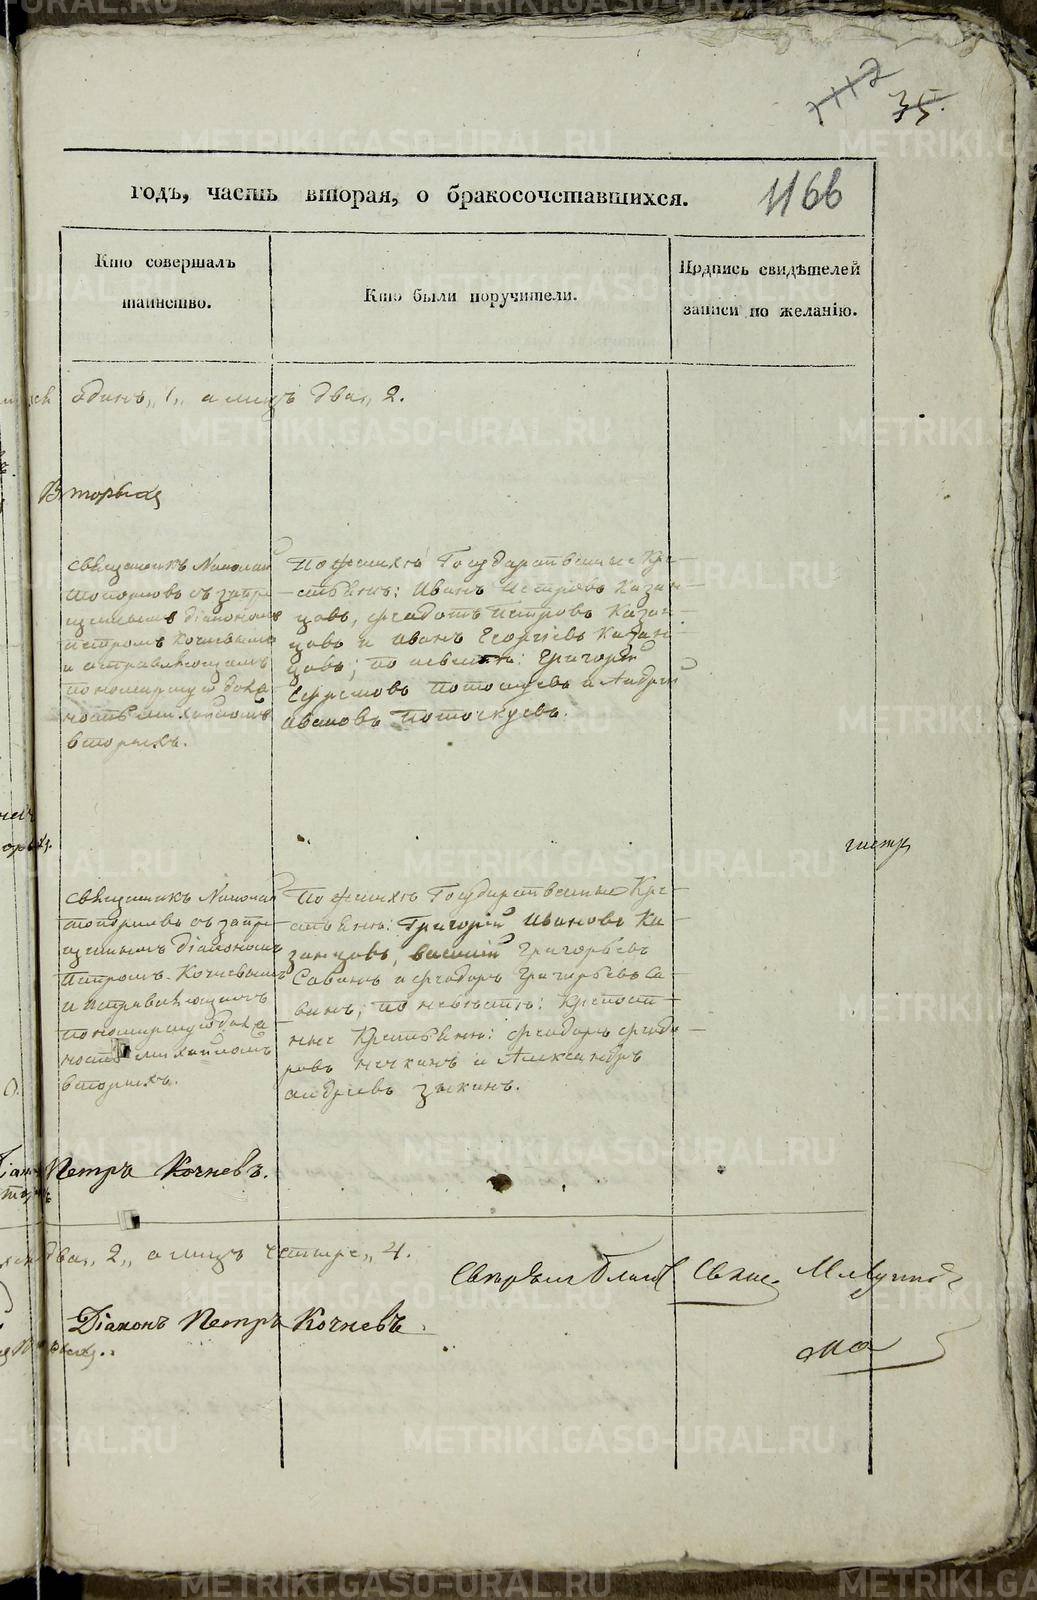 35.
годъ, часть вторая, о бракосочетавшихся.
1166
Кто совершалъ
таинство.
Кто были поручители.
Подпись свидѣтелей
записи по желанію.
одинъ „1„ а лицъ два „2.
Вторыхъ
священникъ Николай
Топорковъ съ запре-
щеннымъ діакономъ
Петромъ Кочневымъ
и исправляющимъ
пономарскую долж
ность
вторыхъ.
По женихѣ Государственные Кре-
стьяне: Иванъ Петровъ Казан-
цовъ, Феодотъ Петровъ Казан-
цовъ и Иванъ Георгіевъ Казан-
цовъ; по невѣстѣ: Григорій
Ефремовъ Потоскуевъ и Андрей
Ивановъ Потоскуевъ.
священникъ Николай
Топорковъ съ запре-
щеннымъ діакономъ
Петромъ Кочневымъ
и исправляющимъ
пономарскую долж
ность
вторыхъ.
По женихѣ Государственные Кре-
стьяне: Григорій Ивановъ Ка-
занцовъ, Василій Григорьевъ
Савинъ и Феодоръ Григорьевъ Са-
винъ; по невѣстѣ: Крепост-
ные Крестьяне: Феодоръ Феодо-
ровъ и Александръ
Андреевъ Зыкинъ.
Петръ Кочневъ.
два „2„ а лицъ четыре „4.
Діаконъ Петръ Кочневъ.
METRIKI.GASO-URAL.RU